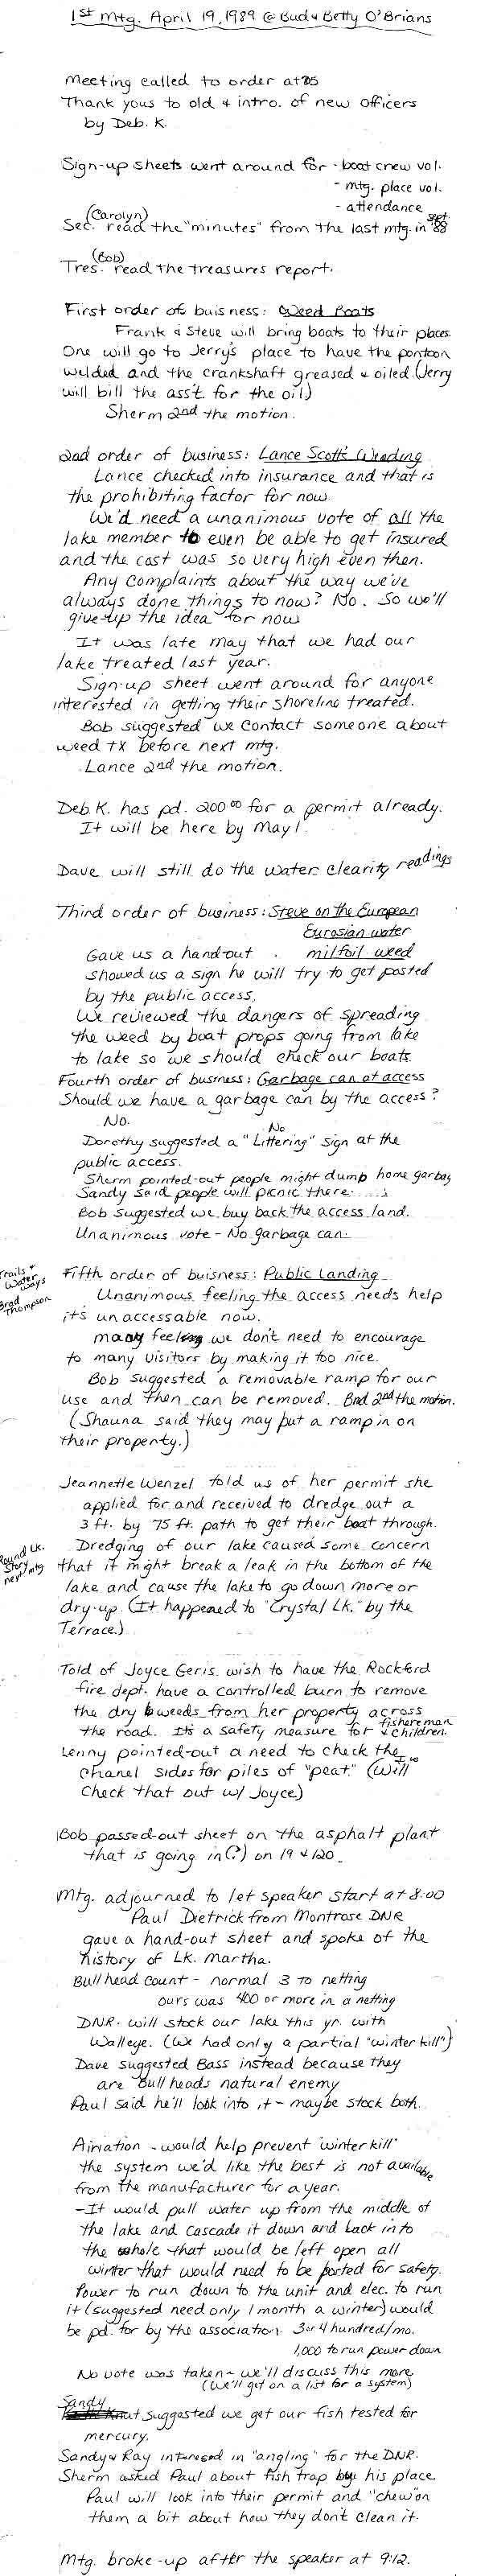 1st Mtg. April 19, 1989 @ Bud & Betty O'Brians
Meeting called to order at 
Thank yous to old & intro. of new officers
by Deb. K.
Sign-up sheets went around for - boat crew vol.
- mtg. place vol.
- attendance
(Carolyn) sept.
Sec. read the "minutes" from the last mtg. in '88
(Bob)
Tres. read the treasures report.
First order of buisness: Weed Boats
Frank & Steve will bring boats to their places.
One will go to Jerry's place to have the pontoon
welded and the crankshaft greased & oiled. (Jerry
will bill the ass't. for the oil.)
Sherm 2nd the motion.
2nd order of business: Lance Scott's Weeding
Lance checked into insurance and that is
the prohibiting factor for now.
We'd need a unanimous vote of all the
lake member to even be able to get insured
and the cost was so very high even then.
Any complaints about the way we've
always done things to now? No. So we'll
give-up the idea for now
It was late may that we had our
lake treated last year.
Sign-up sheet went around for anyone
interested in getting their shoreline treated.
Bob suggested we contact someone about
weed tx before next mtg.
Lance 2nd the motion.
Deb K. has pd. 200 00 for a permit already.
It will be here by May 1.
Dave will still do the water clearity readings
Third order of business: Steve on the European
Eurosian water
Gave us a hand-out . milfoil weed
showed us a sign he will try to get posted
by the public access.
We reviewed the dangers of spreading
the weed by boat props going from lake
to lake so we should check our boats.
Fourth order of business: Garbage can at access
Should we have a garbage can by the access?
No.
No
Dorothy suggested a "Littering" sign at the
public access.
Sherm pointed-out people might dump home garbag
Sandy said people will picnic there.
Bob suggested we buy back the access land.
Unanimous vote - No garbage can.
Trails &
Water
Ways
Brad
Thompson
Fifth order of buisness: Public Landing
Unanimous feeling the access needs help
it's unaccessable now.
many feeling we don't need to encourage
to many visitors by making it too nice.
Bob suggested a removable ramp for our
use and then can be removed. Bnd 2nd the motion.
(Shauna said they may put a ramp in on
their property.)
Jeannette Wenzel told us of her permit she
applied for and received to dredge out a
3 ft. by 75 ft. path to get their boat through.
Round Lk.
Story
next mtg
Dredging of our lake caused some concern
that it might break a leak in the bottom of the
lake and cause the lake to go down more or
dry-up. (It happened to "Crystal Lk." by the
Terrace.)
Told of Joyce Geris wish to have the Rockford
fire dept. have a controlled burn to remove
the dry weeds from her property across
the road. It's a safety measure for fishereman
& children.
Lenny pointed-out a need to check the
chanel sides for piles of "peat." (Will
check that out w/ Joyce)
Bob passed-out sheet on the asphalt plant
that is going in(?) on 19 & 120.
Mtg. adjourned to let speaker start at 8:00
Paul Dietrick from Montrose DNR
gave a hand-out sheet and spoke of the
history of Lk. Martha.
Bullhead count - normal 3 to netting
ours was 400 or more in a netting
DNR. will stock our lake this yr. with
Walleye. (We had only a partial "winter kill")
Dave suggested Bass instead because they
are Bullheads natural enemy
Paul said he'll look into it - maybe stock both.
Airiation - would help prevent "winterkill"
the system we'd like the best is not available
from the manufacturer for a year.
- It would pull water up from the middle of
the lake and cascade it down and back into
the whole that would be left open all
winter that would need to be posted for safety.
Power to run down to the unit and elec. to run
it (suggested need only 1 month a winter) would
be pd. for by the association. 3 or 4 hundred/mo.
1,000 to run power down
No vote was taken - we'll discuss this more
(We'll get on a list for a system)
Sandy
suggested we get our fish tested for
mercury.
Sandy & Ray interesed in "angling" for the DNR.
Sherm asked Paul about fish trap by his place.
Paul will look into their permit and "chew" on
them a bit about how they don't clean it.
Mtg. broke-up after the speaker at 9:12.